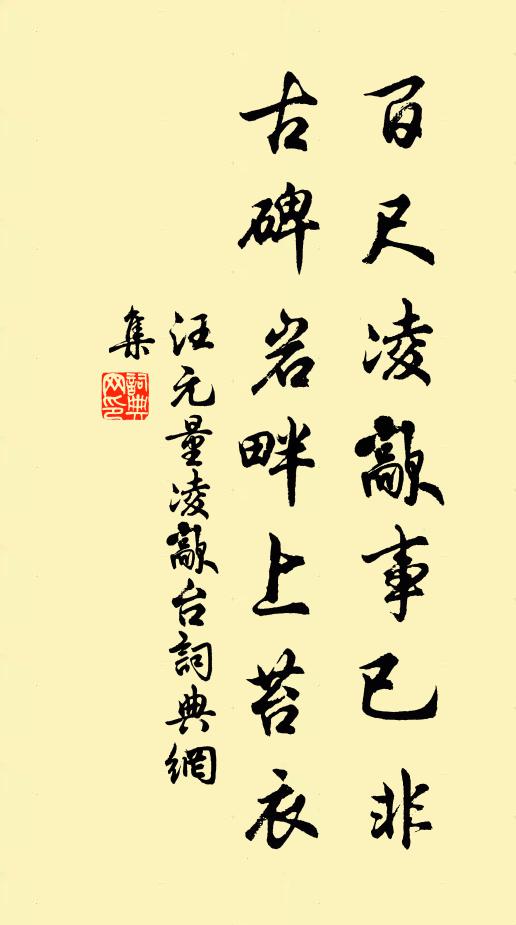 百尺凌歊事已非
古碑岩畔上苔衣
汪元量凌歊台詞典網
集
詞典
网印